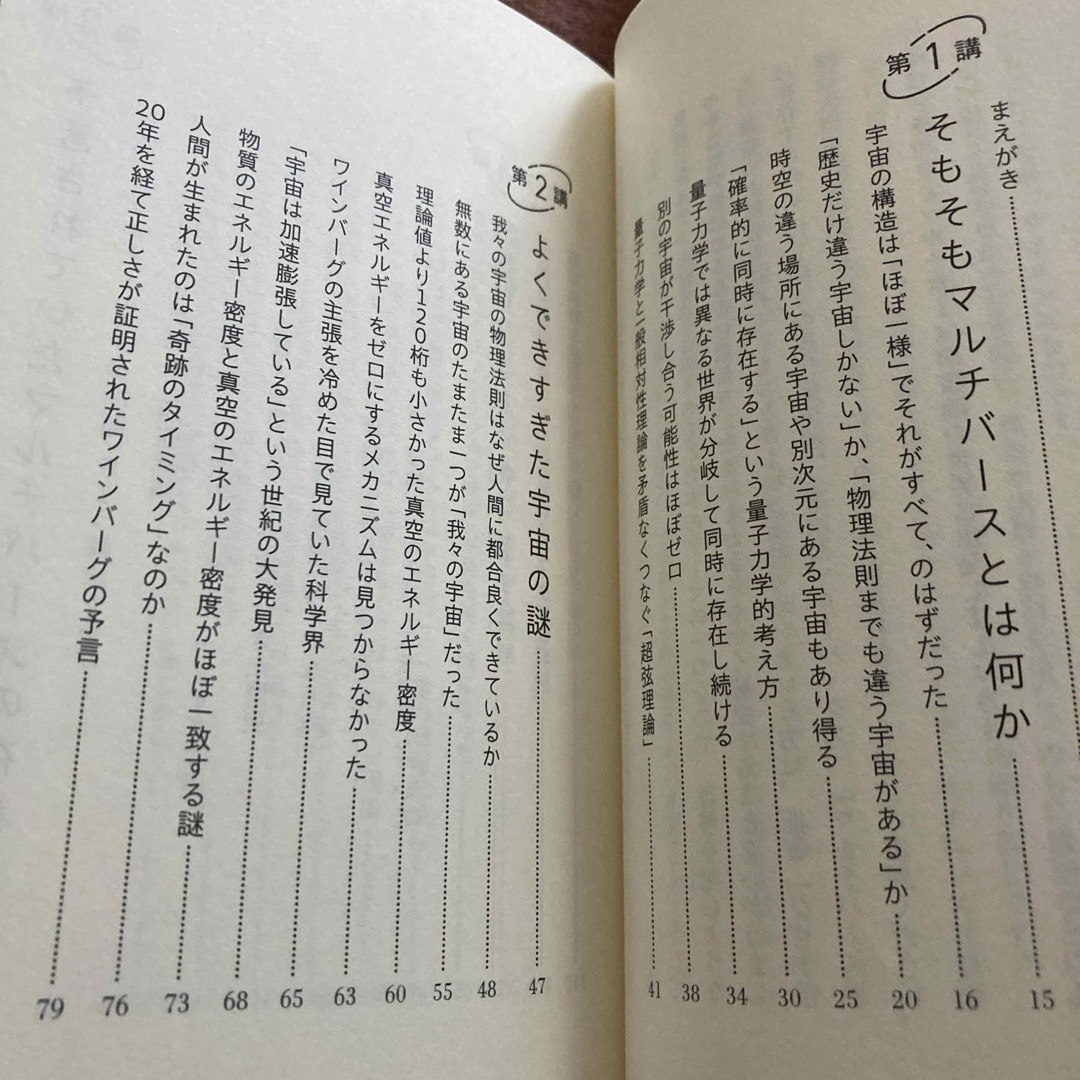 まえがき
第1講 そもそもマルチバースとは何か 15
宇宙の構造は「ほぼ一様」でそれがすべて、のはずだった 16
「歴史だけ違う宇宙しかない」か、「物理法則までも違う宇宙がある」か 20
時空の違う場所にある宇宙や別次元にある宇宙もあり得る 25
「確率的に同時に存在する」という量子力学的考え方 30
量子力学では異なる世界が分岐して同時に存在し続ける 34
別の宇宙が干渉し合う可能性はほぼゼロ 38
量子力学と一般相対性理論を矛盾なくつなぐ「超弦理論」 41
第2講 よくできすぎた宇宙の謎 47
我々の宇宙の物理法則はなぜ人間に都合良くできているか 48
無数にある宇宙のたまたま一つが「我々の宇宙」だった 55
理論値より120桁も小さかった真空のエネルギー密度 60
真空エネルギーをゼロにするメカニズムは見つからなかった 63
ワインバーグの主張を冷めた目で見ていた科学界 65
「宇宙は加速膨張している」という世紀の大発見 68
物質のエネルギー密度と真空のエネルギー密度がほぼ一致する謎 73
人間が生まれたのは「奇跡のタイミング」なのか 76
20年を経て正しさが証明されたワインバーグの予言 79